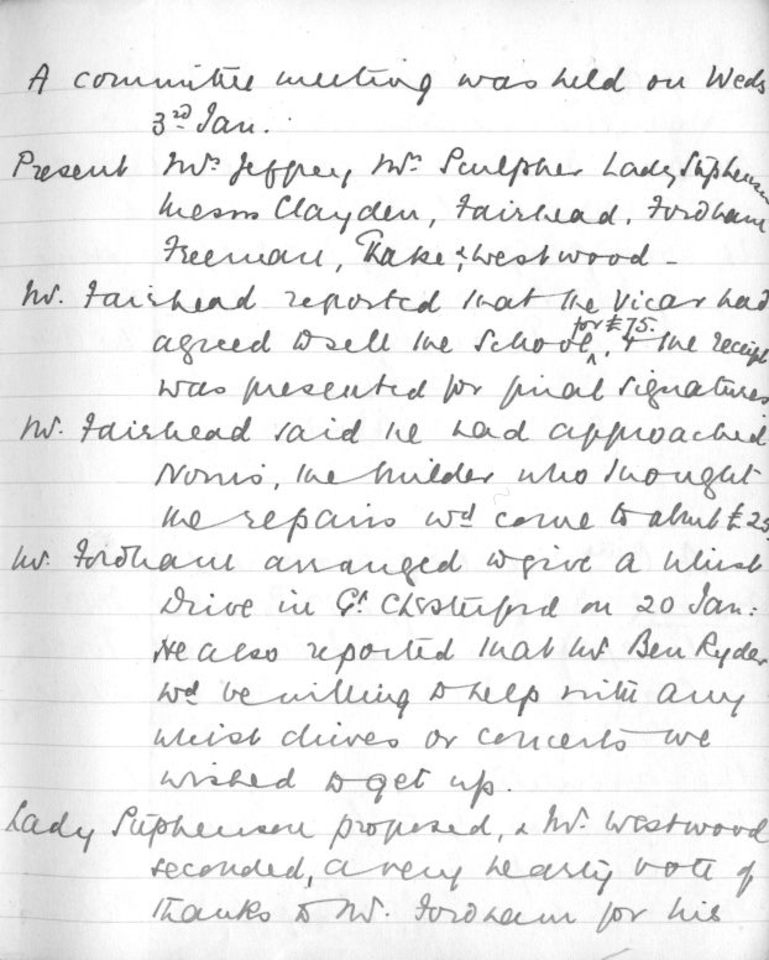 A committee meeting was held on Weds
3rd Jan.
Present Mrs Jeffrey, Mrs Sculpher Lady Stephenson
Messrs Clayden, Fairhead, Fordham
Freeman, Rake & Westwood –
Mr. Fairhead reported that the Vicar had
agreed to sell the School for £75. & the receipt
was presented for final signatures
Mr. Fairhead said he had approached
Norris, the builder who thought
the repairs wd come to about £25
Mr. Fordham arranged to give a Whist
Drive in Gt Chesterford on 20 Jan:
He also reported that Mr Ben Ryder
wd be willing to help with any
whist drives or concerts we
wished to get up.
Lady Stephenson proposed, & Mr. Westwood
seconded, a very hearty vote of
thanks to Mr. Fordham for his